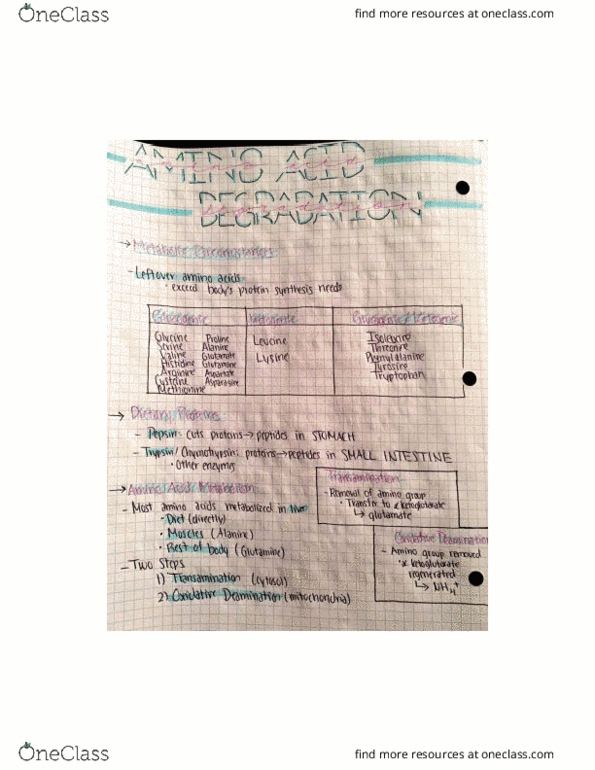 OneClass
find more resources at oneclass.com
AMINO ACID
amino acid
DEGRADATION
degradation
→ Metabolic Circumstances
- Leftover amino acids
· exceed body's protein synthesis needs
Glucogenic Ketogenic Glucogenic/Ketogenic
Glycine Proline Leucine Isoleucine
Serine Alanine Lysine Threonine
Valine Glutamate Phenylalanine
Histidine Glutamine Tyrosine
Arginine Aspartate Tryptophan
Cysteine Asparagine
Methionine
→ Dietary Proteins
- Pepsin: cuts proteins → peptides in STOMACH
- Trypsin/Chymotrypsin: proteins → peptides in SMALL INTESTINE
· Other enzymes
→ Amino Acid Metabolism
- Most amino acids metabolized in liver
· Diet (directly)
· Muscles (Alanine)
· Rest of body (Glutamine)
- Two Steps
1) Transamination (cytosol)
2) Oxidative Deamination (mitochondria)
Transamination
- Removal of amino group
· Transfer to α ketoglutarate
↳ glutamate
Oxidative Deamination
- Amino group removed
· α ketoglutarate
regenerated
↳ NH₄⁺
OneClass
find more resources at oneclass.com